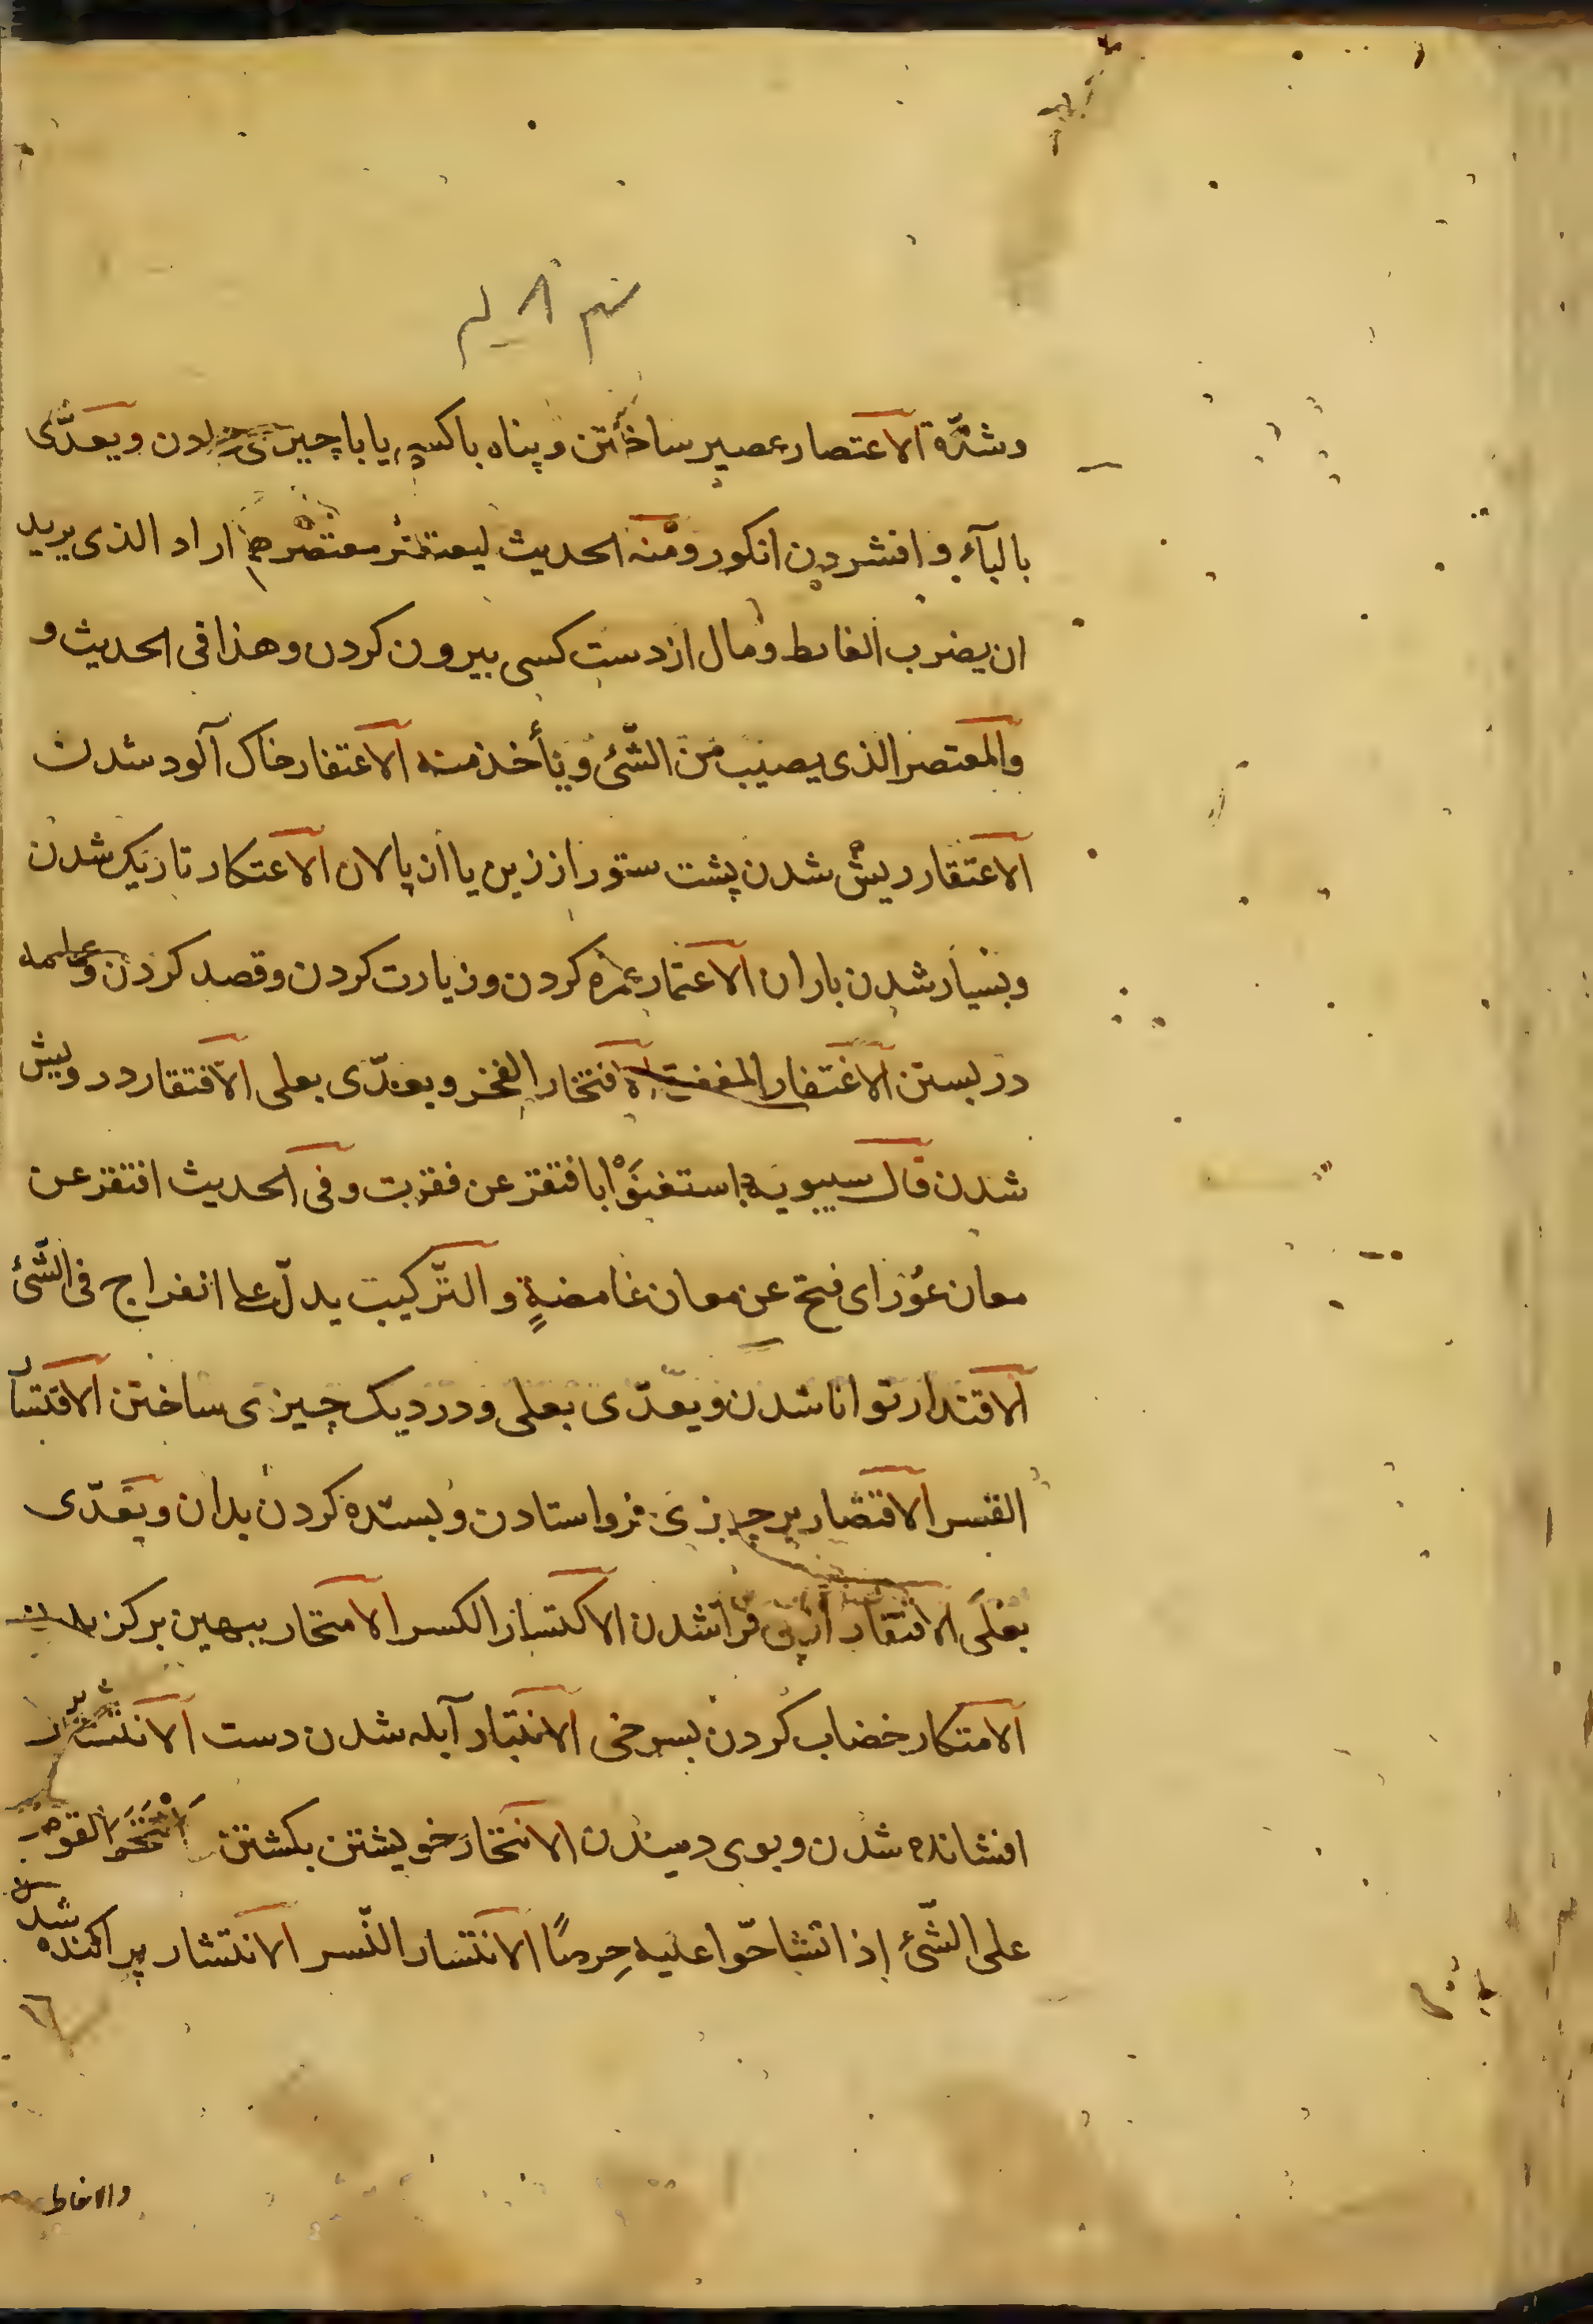 وشدّة الاعتصار عصیر ساختن و پناه باکسی یا با چیزی دن و یعدّی
بالبآء و افشردن انکور ومنه الحدیث لیعتصر معتصرهم اراد الذی یرید
ان یضرب الغایط و مال از دست کسی بیرون کردن و هذا فی الحدیث و
والمعتصر الذی یصیب من الشّئ و یأخذ منه الاعتفار خاک آلود شدن
الاعتقار ریش شدن پشت ستور از زین یا از پالان الاعتکار تاریک شدن
و بسیار شدن باران الاعتمار عمره کردن و زیارت کردن و قصد کردن و عمامه
در بستن الاغتفار المغفرة الافتخار الفخر و یعدّی بعلی الافتقار درویش
شدن قال سیبویه استغنوا بافتقر عن فقرت و فی الحدیث افتقر عن
معان عور ای فتح عن معان غامضةٍ و التّرکیب یدلّ علی انفراج فی الشّئ
الاقتدار توانا شدن و یعدّی بعلی و در دیک چیزی ساختن الاقتسار
القسر الاقتصار بر چیزی فرو استادن و بسنده کردن بدان و یعدّی
بعلی الاقتفار از پی فرا شدن الاکتسار الکسر الامتخار بهین برکزیدن
الامتکار خضاب کردن بسرخی الانتبار آبله شدن دست الانتثار
افشانده شدن و بوی دمیدن الانتحار خویشتن بکشتن انتحر القوم
علی الشّئ إذا تشاحّوا علیه حِرصًا الانتسار النّسر الانتشار پراکنده شدن